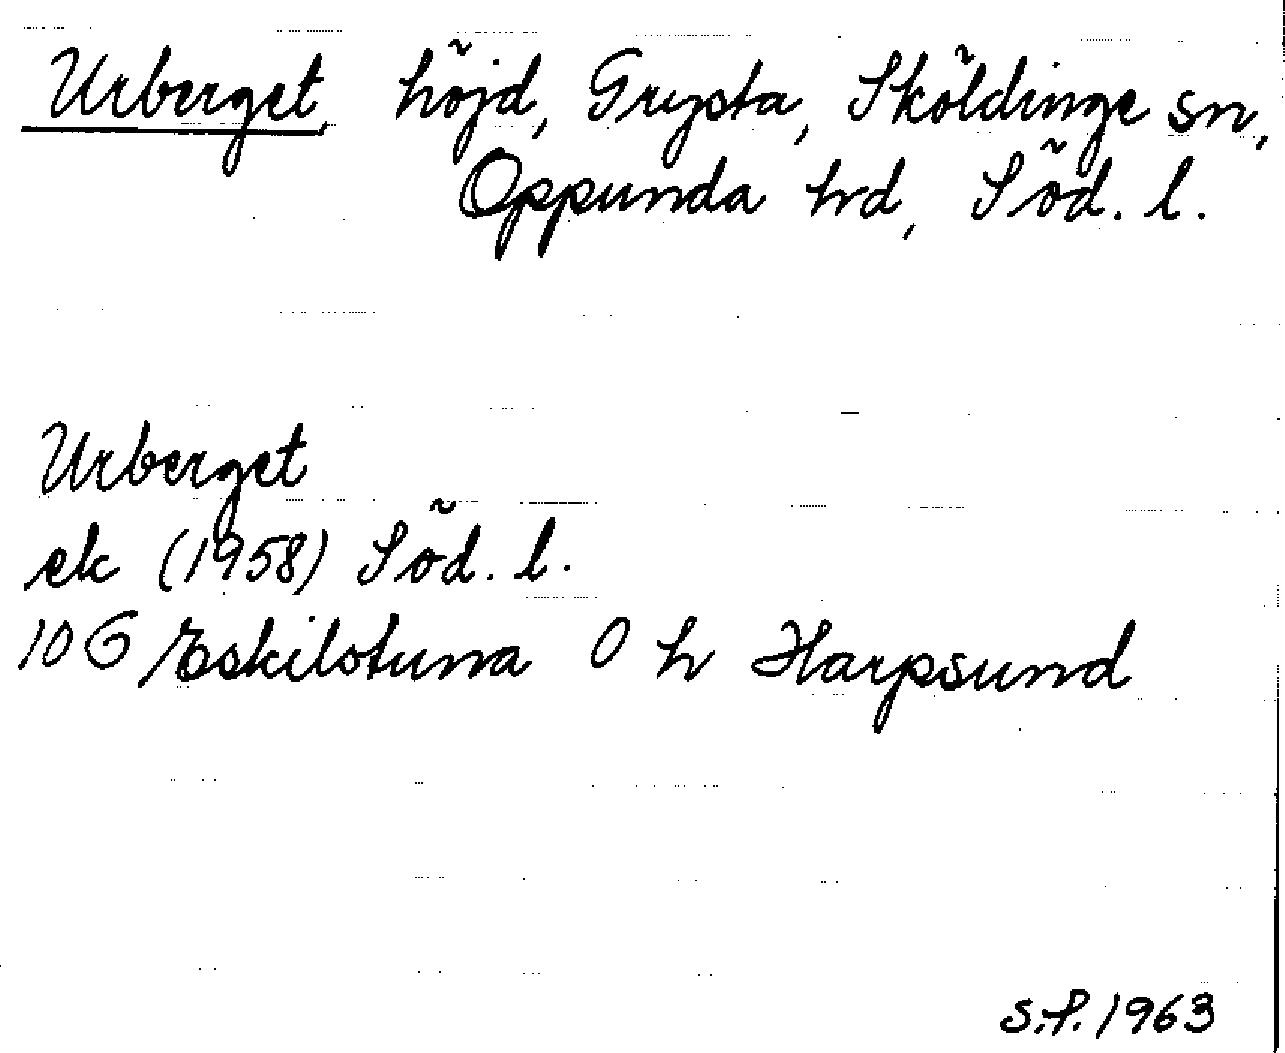 Urberget, höjd, Grysta, Sköldinge sn,
Oppunda hd, Söd. l.
Urberget
ek (1958) Söd. l.
10 G Eskilstuna 0 h Harpsund
S.P. 1963